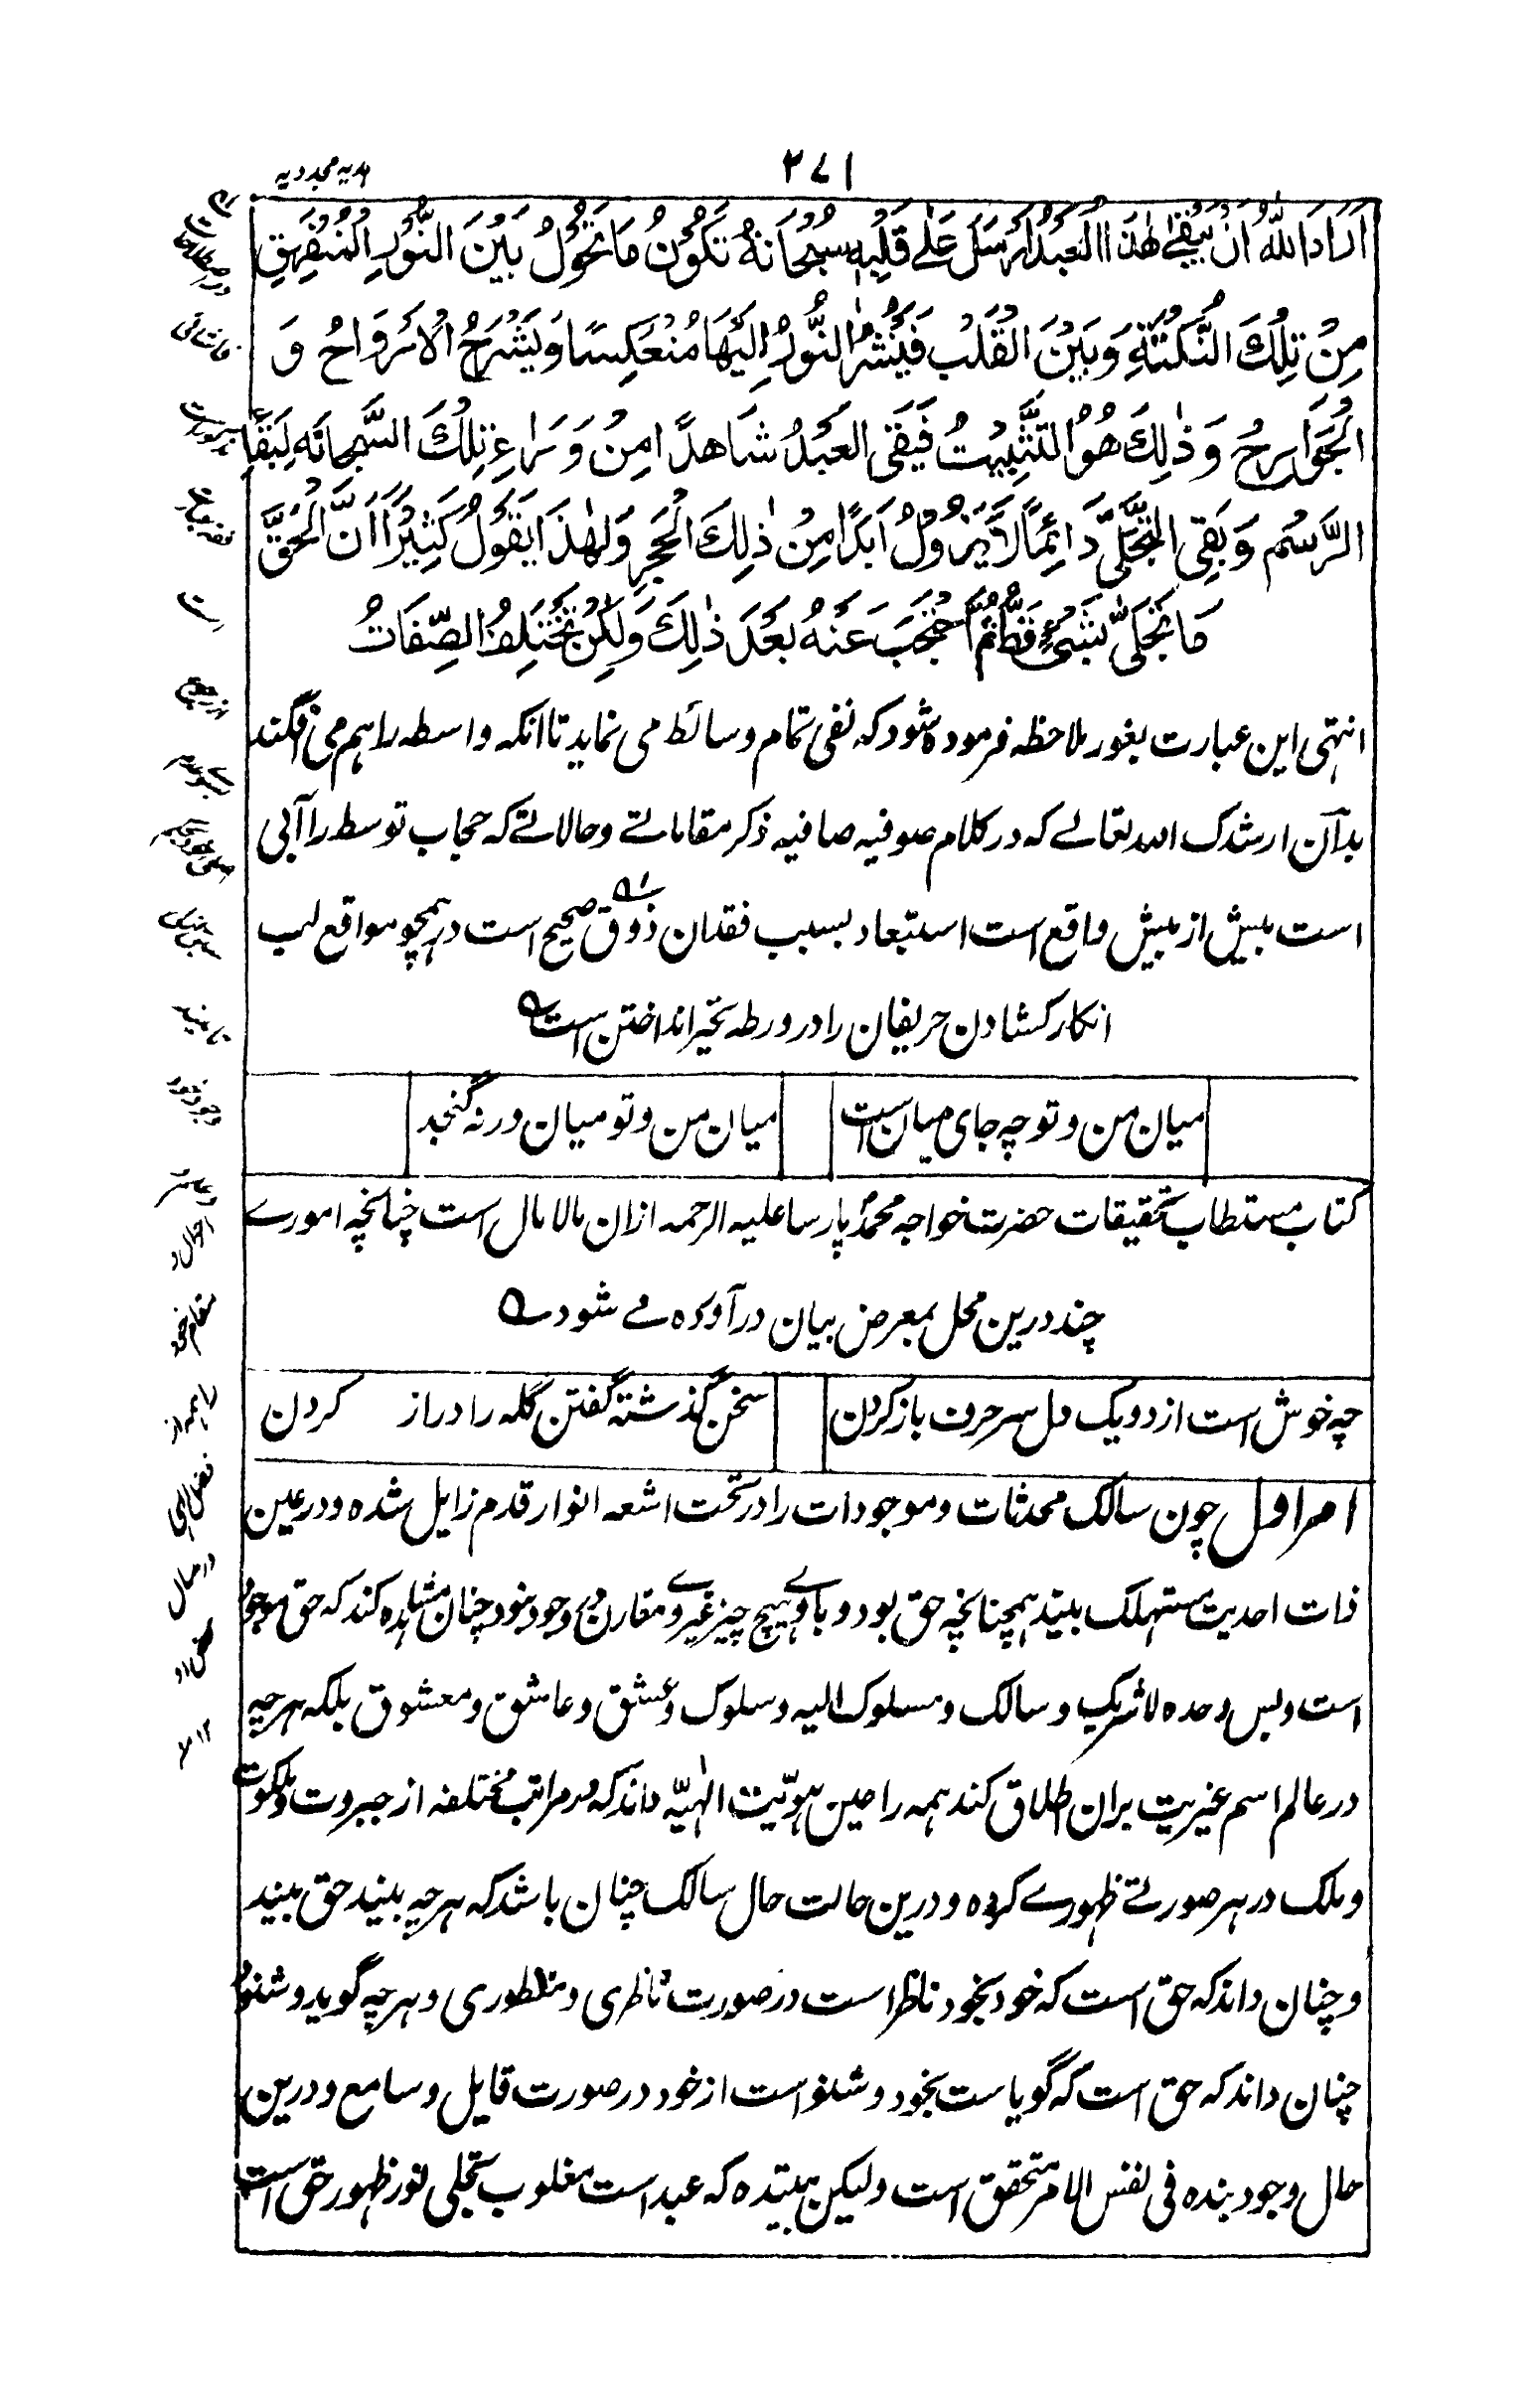 ۲۷۱
هدیه مجددیه
اَرَادَ اللّٰهُ اَنْ یَّبْقٰی هٰذَا الْعَبْدُ اَرْسَلَ عَلٰی قَلْبِهٖ سُبْحَانَهٗ تَکُوْنُ مَا تَحُوْلُ بَیْنَ النُّوْرِ الْمُنْفَهِقِ
مِنْ تِلْكَ النُّكْتَةِ وَبَیْنَ الْقَلْبِ فَیَنْشُرُ النُّوْرُ اِلَیْهَا مُنْعَكِسًا وَیَشْرَحُ الْاَرْوَاحُ وَ
الْجَوَارِحُ وَذٰلِكَ هُوَ التَّثْبِیْتُ فَیَبْقَی الْعَبْدُ شَاهِدًا مِنْ وَرَاءِ تِلْكَ السَّحَابَةِ لِبَقَاءِ
الرَّسْمِ وَبَقِیَ التَّجَلِّیْ دَائِمًا لَا یَزُوْلُ اَبَدًا مِنْ ذٰلِكَ الْحَجَرِ وَلِهٰذَا یَقُوْلُ كَثِیْرًا اَنَّ الْحَقَّ
مَا تَجَلّٰی لِشَیْءٍ قَطُّ ثُمَّ احْتَجَبَ عَنْهُ بَعْدَ ذٰلِكَ وَلٰكِنْ تَخْتَلِفُ الصِّفَاتُ
انتهی این عبارت بغور ملاحظه فرموده شود که نفی تمام وسائط می نماید تا انکه واسطه را هم می افگند
بدآن ارشدک الله تعالے که در کلام صوفیه صافیه ذکر مقاماتے وحالاتے که حجاب توسط را آبی
است بیش از بیش واقع است استبعاد بسبب فقدان ذوق صحیح است در همچو مواقع لب
انکار کشادن حریفان را در ورطه تحیر انداختن است
میان من وتو چه جای میان است میان من وتو میان ور نه گنجد
کتاب مستطاب تحقیقات حضرت خواجه محمد پارسا علیه الرحمه ازان مالامال است چنانچه امورے
چند درین محل بمعرض بیان در آورده مے شود
چه خوش است از دو یک دل سر حرف باز کردن سخن گذشته گفتن گله را دراز کردن
امر اول چون سالک محدثات وموجودات را در تحت اشعه انوار قدم زایل شده ودر عین
ذات احدیت مستهلک بیند همچنانچه حق بود و با وے هیچ چیز غیرے ومقارن وجود نبود چنان مشاهده کند که حق موجود
است وبس وحده لاشریک و سالک ومسلوک الیه وسلوک وعشق وعاشق ومعشوق بلکه هرچه
در عالم اسم غیریت بران اطلاق کند همه را عین هویّت الٰهیّه داند که در مراتب مختلفه از جبروت وملکوت
وملک در هر صورتے ظهورے کرده ودرین حالت حال سالک چنان باشد که هرچه بیند حق بیند
وچنان داند که حق است که خود بخود ناظر است در صورت ناظری ومنظوری وهرچه گوید وشنود
چنان داند که حق است که گویاست بخود وشنواست از خود در صورت قایل وسامع ودرین
حال وجود بنده فی نفس الامر متحقق است ولیکن بیننده که عبد است مغلوب تجلی نور ظهور حق است
است
وجود خود
احوال و
مقام خود
را همه از
فضل الهی
در سال
۱۲